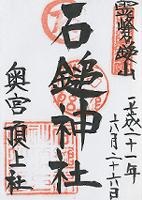 霊峰石鎚山
平成二十一年
六月二十六日
石鎚神社
奥宮頂上社